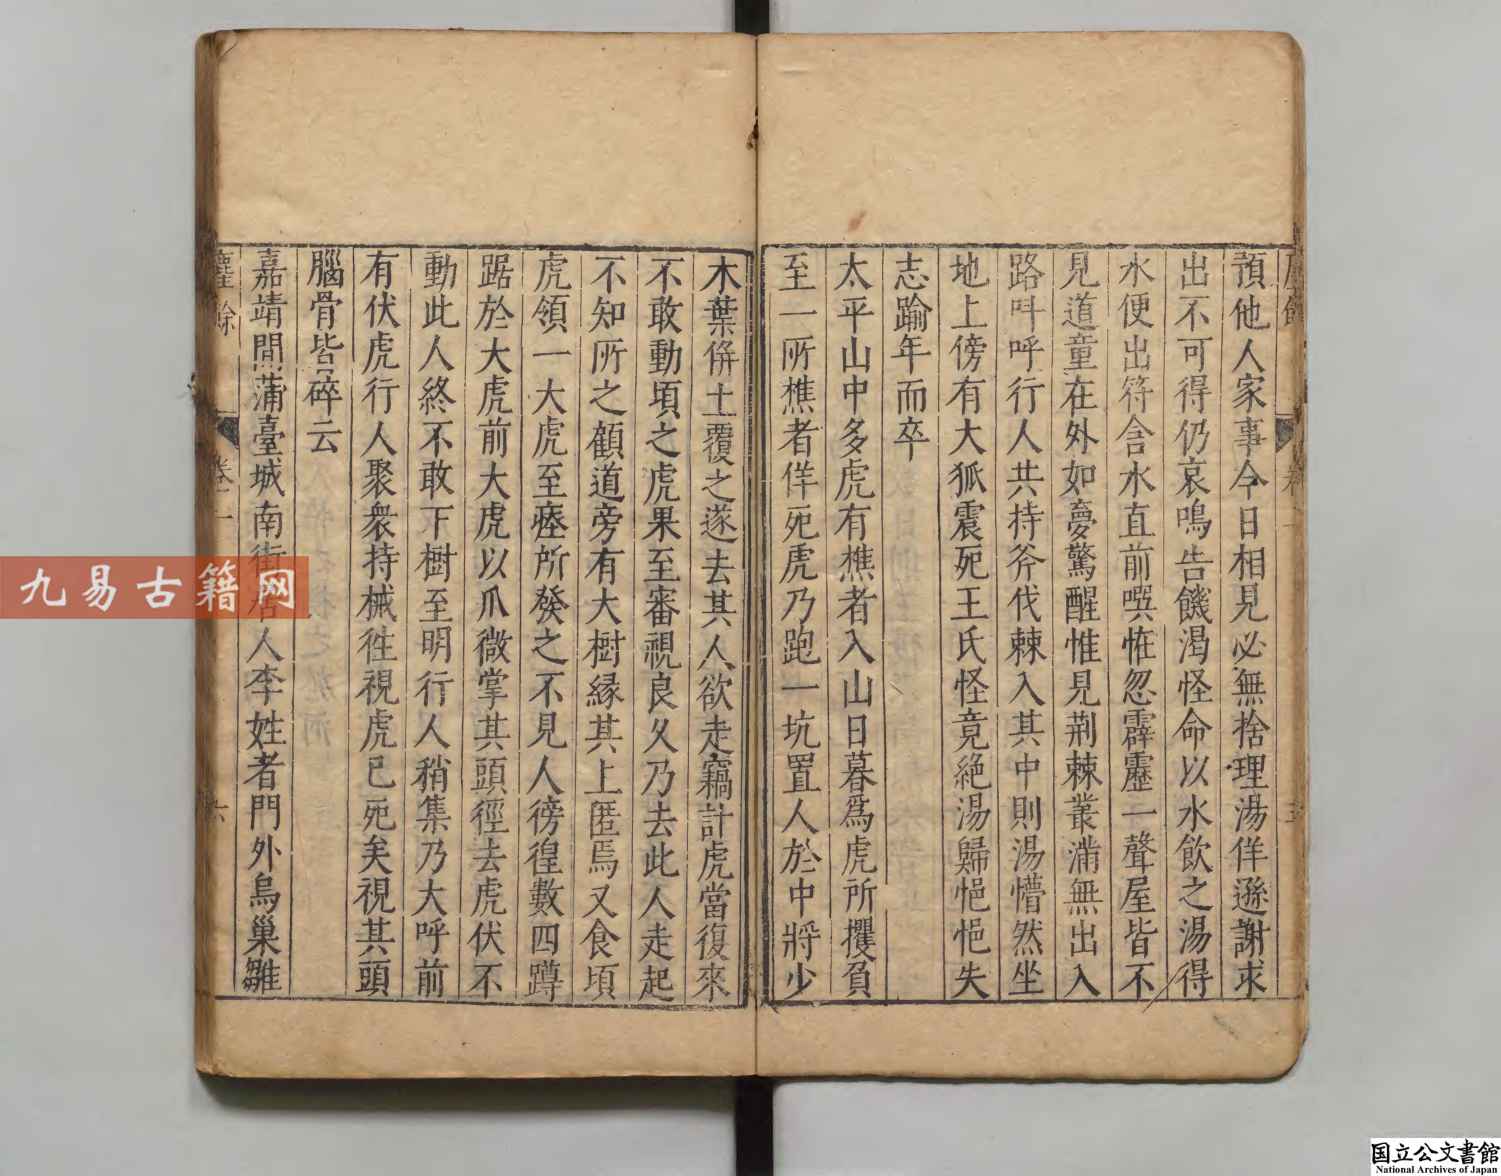 預他人家事今日相見必無捨理湯佯遜謝求
出不可得仍哀鳴告饑渴怪命以水飲之湯得
水便出符含水直前噀怪忽霹靂一聲屋皆不
見道童在外如夢驚醒惟見荆棘叢滿無出入
路呌呼行人共持斧伐棘入其中則湯懵然坐
地上傍有大狐震死王氏怪竟絶湯歸悒悒失
志踰年而卒
太平山中多虎有樵者入山日暮爲虎所攫負
至一所樵者佯死虎乃跑一坑置人於中將少
木葉倂土覆之遂去其人欲走竊計虎當復來
不敢動頃之虎果至審視良久乃去此人走起
不知所之顧道旁有大樹緣其上匿焉又食頃
虎領一大虎至瘞所發之不見人徬徨數四蹲
踞於大虎前大虎以爪微掌其頭徑去虎伏不
動此人終不敢下樹至明行人稍集乃大呼前
有伏虎行人聚衆持械徃視虎已死矣視其頭
腦骨皆碎云
嘉靖間蒲臺城南街居人李姓者門外烏巢雛
麈餘
卷二
六
九易古籍网
国立公文書館
National Archives of Japan